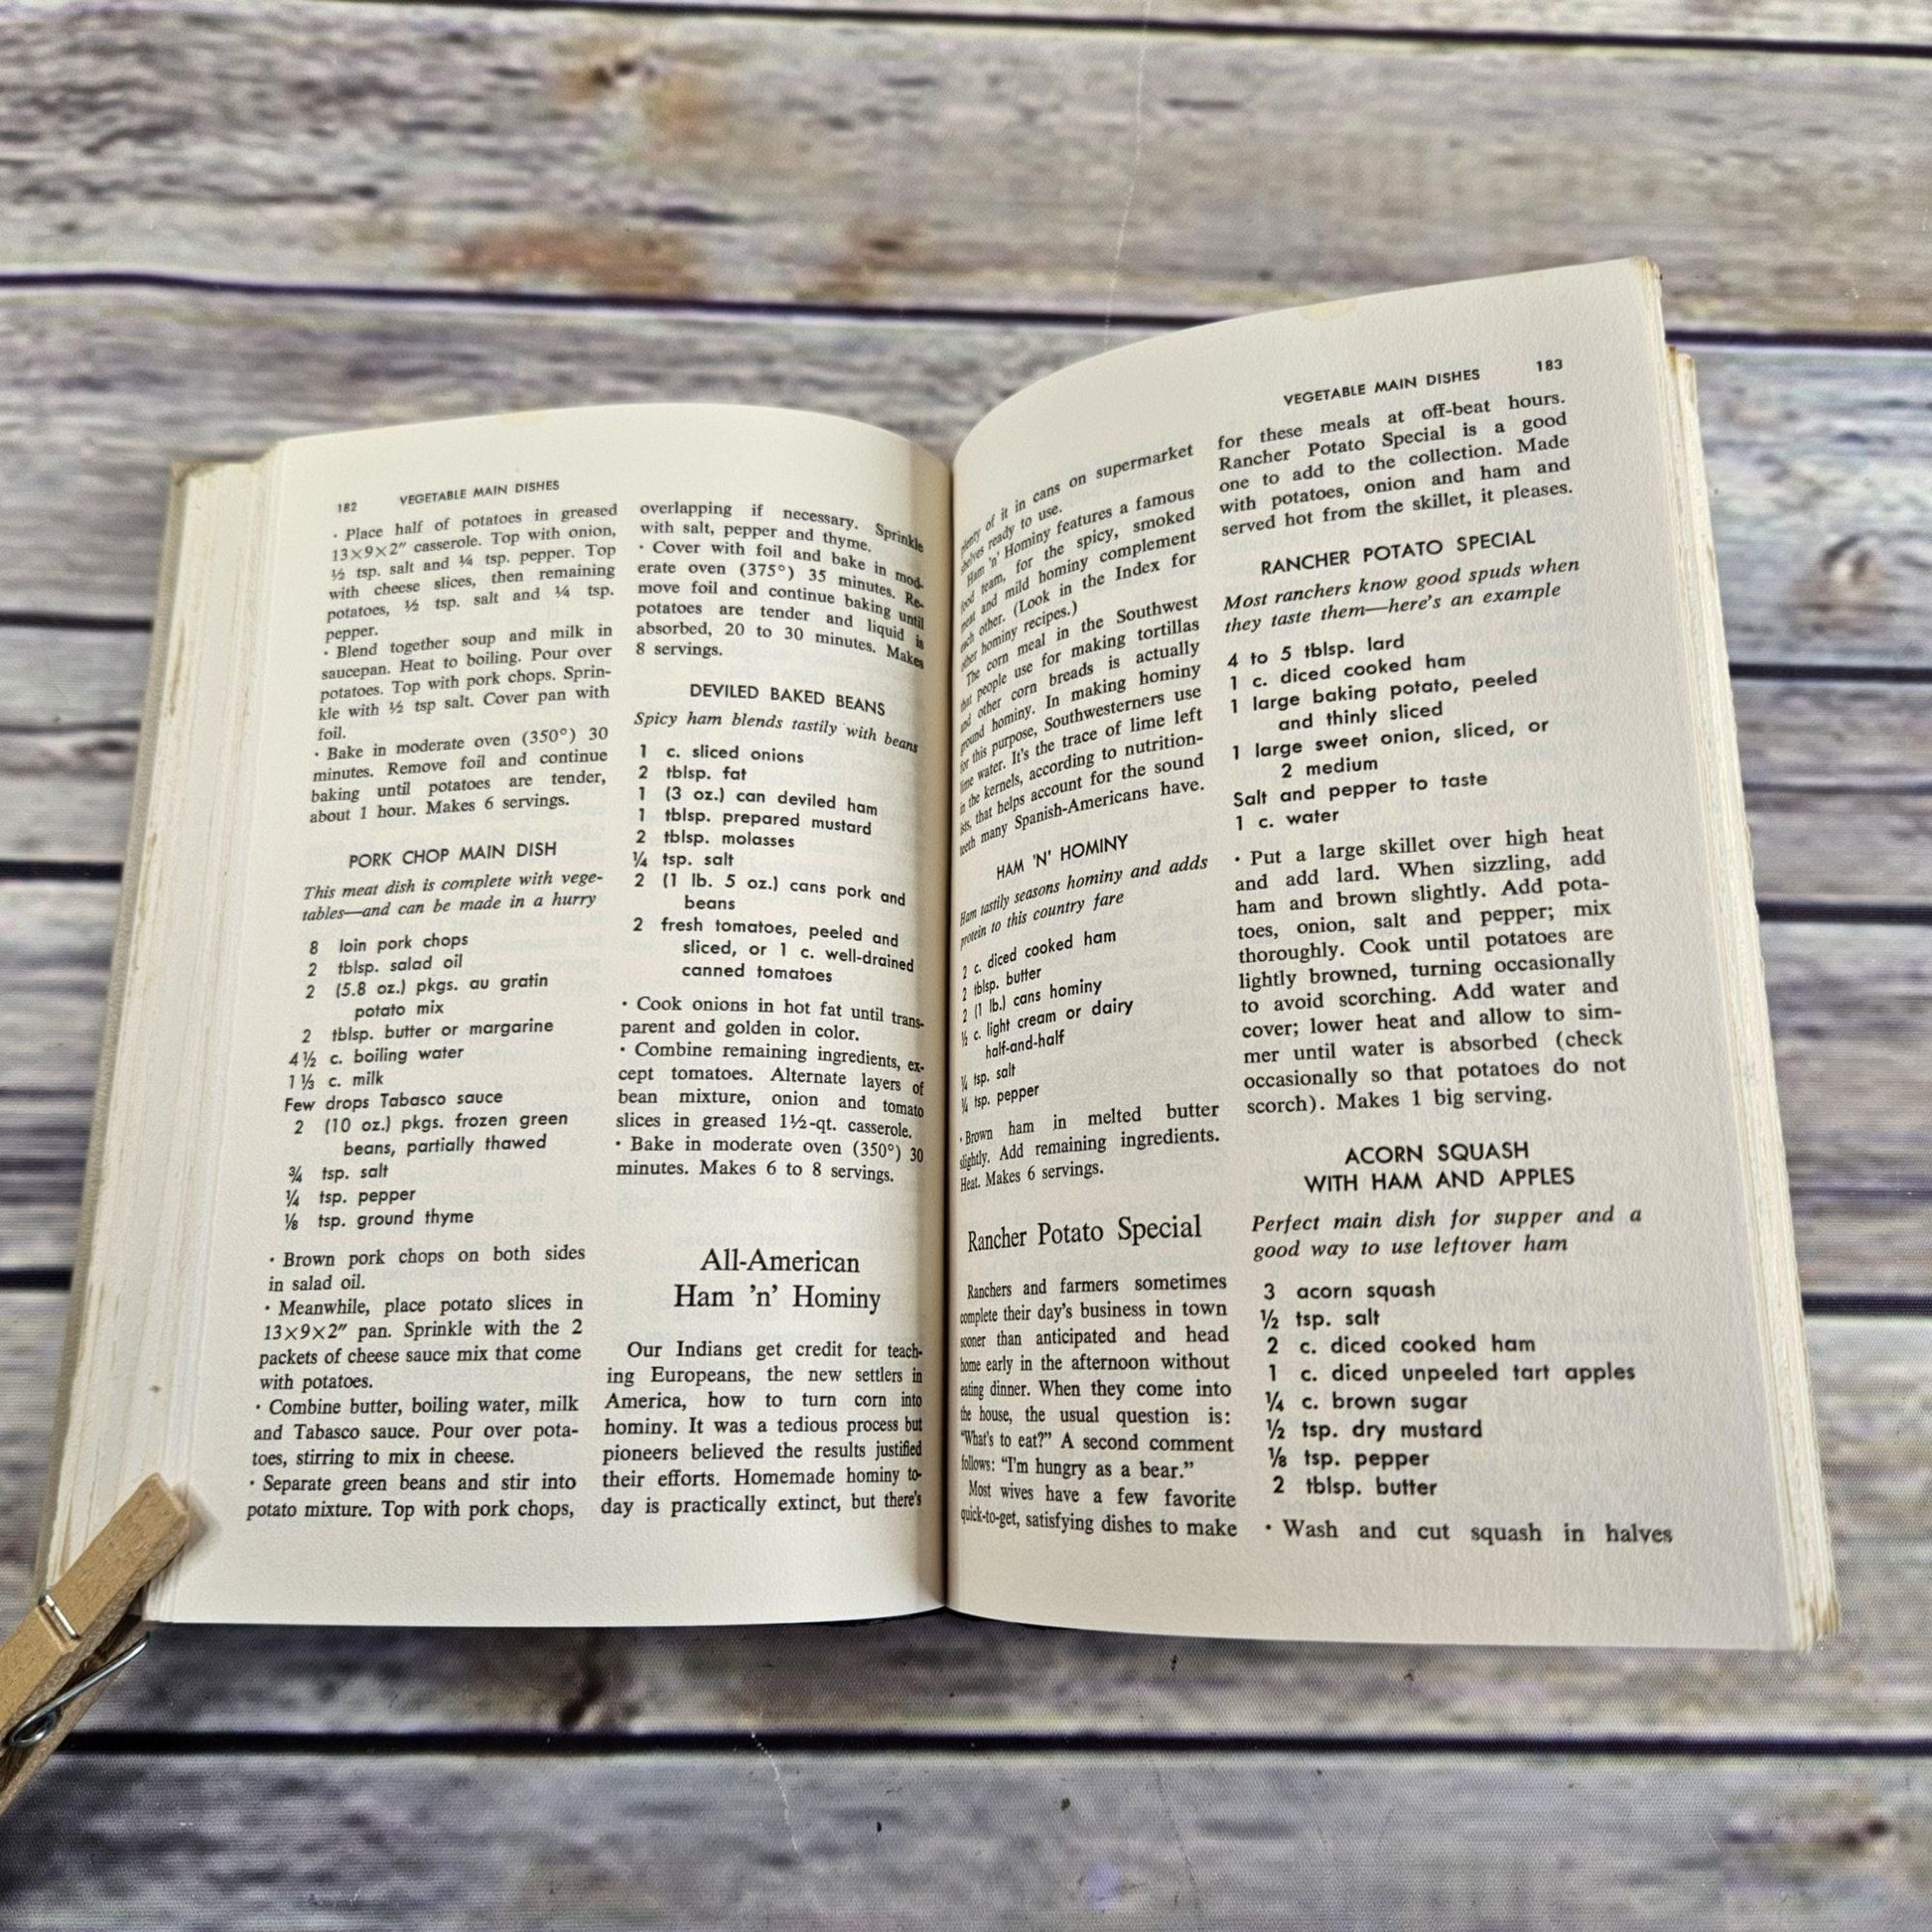 182 VEGETABLE MAIN DISHES
· Place half of potatoes in greased
13×9×2″ casserole. Top with onion,
½ tsp. salt and ¼ tsp. pepper. Top
with cheese slices, then remaining
potatoes, ½ tsp. salt and ¼ tsp.
pepper.
· Blend together soup and milk in
saucepan. Heat to boiling. Pour over
potatoes. Top with pork chops. Sprin-
kle with ½ tsp salt. Cover pan with
foil.
· Bake in moderate oven (350°) 30
minutes. Remove foil and continue
baking until potatoes are tender,
about 1 hour. Makes 6 servings.
PORK CHOP MAIN DISH
This meat dish is complete with vege-
tables—and can be made in a hurry
8 loin pork chops
2 tblsp. salad oil
2 (5.8 oz.) pkgs. au gratin
potato mix
2 tblsp. butter or margarine
4½ c. boiling water
1⅓ c. milk
Few drops Tabasco sauce
2 (10 oz.) pkgs. frozen green
beans, partially thawed
¾ tsp. salt
¼ tsp. pepper
⅛ tsp. ground thyme
· Brown pork chops on both sides
in salad oil.
· Meanwhile, place potato slices in
13×9×2″ pan. Sprinkle with the 2
packets of cheese sauce mix that come
with potatoes.
· Combine butter, boiling water, milk
and Tabasco sauce. Pour over pota-
toes, stirring to mix in cheese.
· Separate green beans and stir into
potato mixture. Top with pork chops,
overlapping if necessary. Sprinkle
with salt, pepper and thyme.
· Cover with foil and bake in mod-
erate oven (375°) 35 minutes. Re-
move foil and continue baking until
potatoes are tender and liquid is
absorbed, 20 to 30 minutes. Makes
8 servings.
DEVILED BAKED BEANS
Spicy ham blends tastily with beans
1 c. sliced onions
2 tblsp. fat
1 (3 oz.) can deviled ham
1 tblsp. prepared mustard
2 tblsp. molasses
¼ tsp. salt
2 (1 lb. 5 oz.) cans pork and
beans
2 fresh tomatoes, peeled and
sliced, or 1 c. well-drained
canned tomatoes
· Cook onions in hot fat until trans-
parent and golden in color.
· Combine remaining ingredients, ex-
cept tomatoes. Alternate layers of
bean mixture, onion and tomato
slices in greased 1½-qt. casserole.
· Bake in moderate oven (350°) 30
minutes. Makes 6 to 8 servings.
All-American
Ham 'n' Hominy
Our Indians get credit for teach-
ing Europeans, the new settlers in
America, how to turn corn into
hominy. It was a tedious process but
pioneers believed the results justified
their efforts. Homemade hominy to-
day is practically extinct, but there's
VEGETABLE MAIN DISHES 183
plenty of it in cans on supermarket
shelves ready to use.
Ham 'n' Hominy features a famous
food team, for the spicy, smoked
meat and mild hominy complement
each other. (Look in the Index for
other hominy recipes.)
The corn meal in the Southwest
that people use for making tortillas
and other corn breads is actually
ground hominy. In making hominy
for this purpose, Southwesterners use
lime water. It's the trace of lime left
in the kernels, according to nutrition-
ists, that helps account for the sound
teeth many Spanish-Americans have.
HAM 'N' HOMINY
Ham tastily seasons hominy and adds
protein to this country fare
2 c. diced cooked ham
2 tblsp. butter
2 (1 lb.) cans hominy
½ c. light cream or dairy
half-and-half
¼ tsp. salt
¼ tsp. pepper
· Brown ham in melted butter
slightly. Add remaining ingredients.
Heat. Makes 6 servings.
Rancher Potato Special
Ranchers and farmers sometimes
complete their day's business in town
sooner than anticipated and head
home early in the afternoon without
eating dinner. When they come into
the house, the usual question is:
"What's to eat?" A second comment
follows: "I'm hungry as a bear."
Most wives have a few favorite
quick-to-get, satisfying dishes to make
for these meals at off-beat hours.
Rancher Potato Special is a good
one to add to the collection. Made
with potatoes, onion and ham and
served hot from the skillet, it pleases.
RANCHER POTATO SPECIAL
Most ranchers know good spuds when
they taste them—here's an example
4 to 5 tblsp. lard
1 c. diced cooked ham
1 large baking potato, peeled
and thinly sliced
1 large sweet onion, sliced, or
2 medium
Salt and pepper to taste
1 c. water
· Put a large skillet over high heat
and add lard. When sizzling, add
ham and brown slightly. Add pota-
toes, onion, salt and pepper; mix
thoroughly. Cook until potatoes are
lightly browned, turning occasionally
to avoid scorching. Add water and
cover; lower heat and allow to sim-
mer until water is absorbed (check
occasionally so that potatoes do not
scorch). Makes 1 big serving.
ACORN SQUASH
WITH HAM AND APPLES
Perfect main dish for supper and a
good way to use leftover ham
3 acorn squash
½ tsp. salt
2 c. diced cooked ham
1 c. diced unpeeled tart apples
¼ c. brown sugar
½ tsp. dry mustard
⅛ tsp. pepper
2 tblsp. butter
· Wash and cut squash in halves